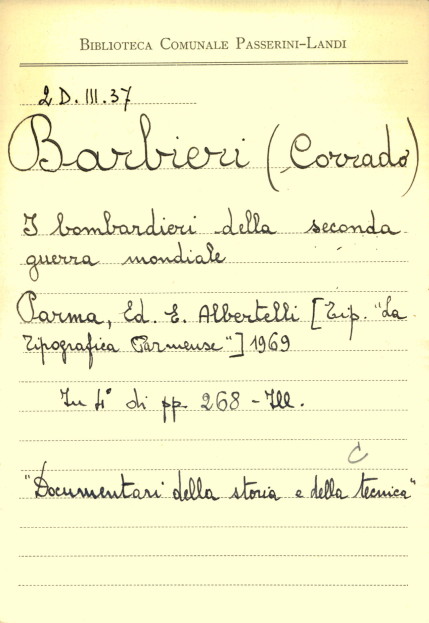 BIBLIOTECA COMUNALE PASSERINI-LANDI
2 D. III. 37
Barbieri (Corrado)
I bombardieri della seconda
guerra mondiale
Parma, Ed. E. Albertelli [Tip. "La
Tipografica Parmense"] 1969
In 4° di pp. 268 - Ill.
C
"Documentari della storia e della tecnica"